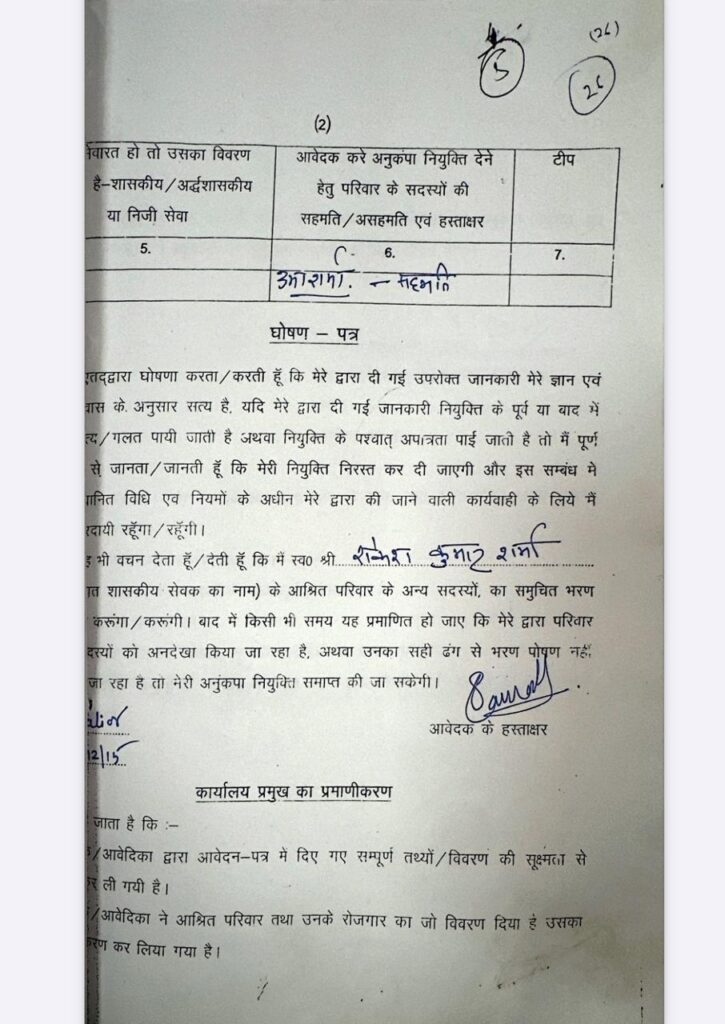 (26)
5
26
(2)
र्यरत हो तो उसका विवरण
है–शासकीय/अर्द्धशासकीय
या निजी सेवा
आवेदक करे अनुकंपा नियुक्ति देने
हेतु परिवार के सदस्यों की
सहमति/असहमति एवं हस्ताक्षर
टीप
5.
6.
7.
– सहमति
घोषण – पत्र
तद्द्वारा घोषणा करता/करती हूँ कि मेरे द्वारा दी गई उपरोक्त जानकारी मेरे ज्ञान एवं
वास के अनुसार सत्य है, यदि मेरे द्वारा दी गई जानकारी नियुक्ति के पूर्व या बाद में
त्य/गलत पायी जाती है अथवा नियुक्ति के पश्चात् अपात्रता पाई जाती है तो मैं पूर्ण
से जानता/जानती हूँ कि मेरी नियुक्ति निरस्त कर दी जाएगी और इस सम्बंध मे
ानित विधि एव नियमों के अधीन मेरे द्वारा की जाने वाली कार्यवाही के लिये मैं
रदायी रहूँगा/रहूँगी।
भी वचन देता हूँ/देती हूँ कि मैं स्व0 श्री राकेश कुमार शर्मा
त शासकीय सेवक का नाम) के आश्रित परिवार के अन्य सदस्यों, का समुचित भरण
करूंगा/करूंगी। बाद में किसी भी समय यह प्रमाणित हो जाए कि मेरे द्वारा परिवार
दस्यों को अनदेखा किया जा रहा है, अथवा उनका सही ढंग से भरण पोषण नहीं
जा रहा है तो मेरी अनुंकपा नियुक्ति समाप्त की जा सकेगी।
आवेदक के हस्ताक्षर
12/15
कार्यालय प्रमुख का प्रमाणीकरण
जाता है कि :–
/आवेदिका द्वारा आवेदन–पत्र में दिए गए सम्पूर्ण तथ्यों/विवरण की सूक्ष्मता से
र ली गयी है।
/आवेदिका ने आश्रित परिवार तथा उनके रोजगार का जो विवरण दिया है उसका
रण कर लिया गया है।